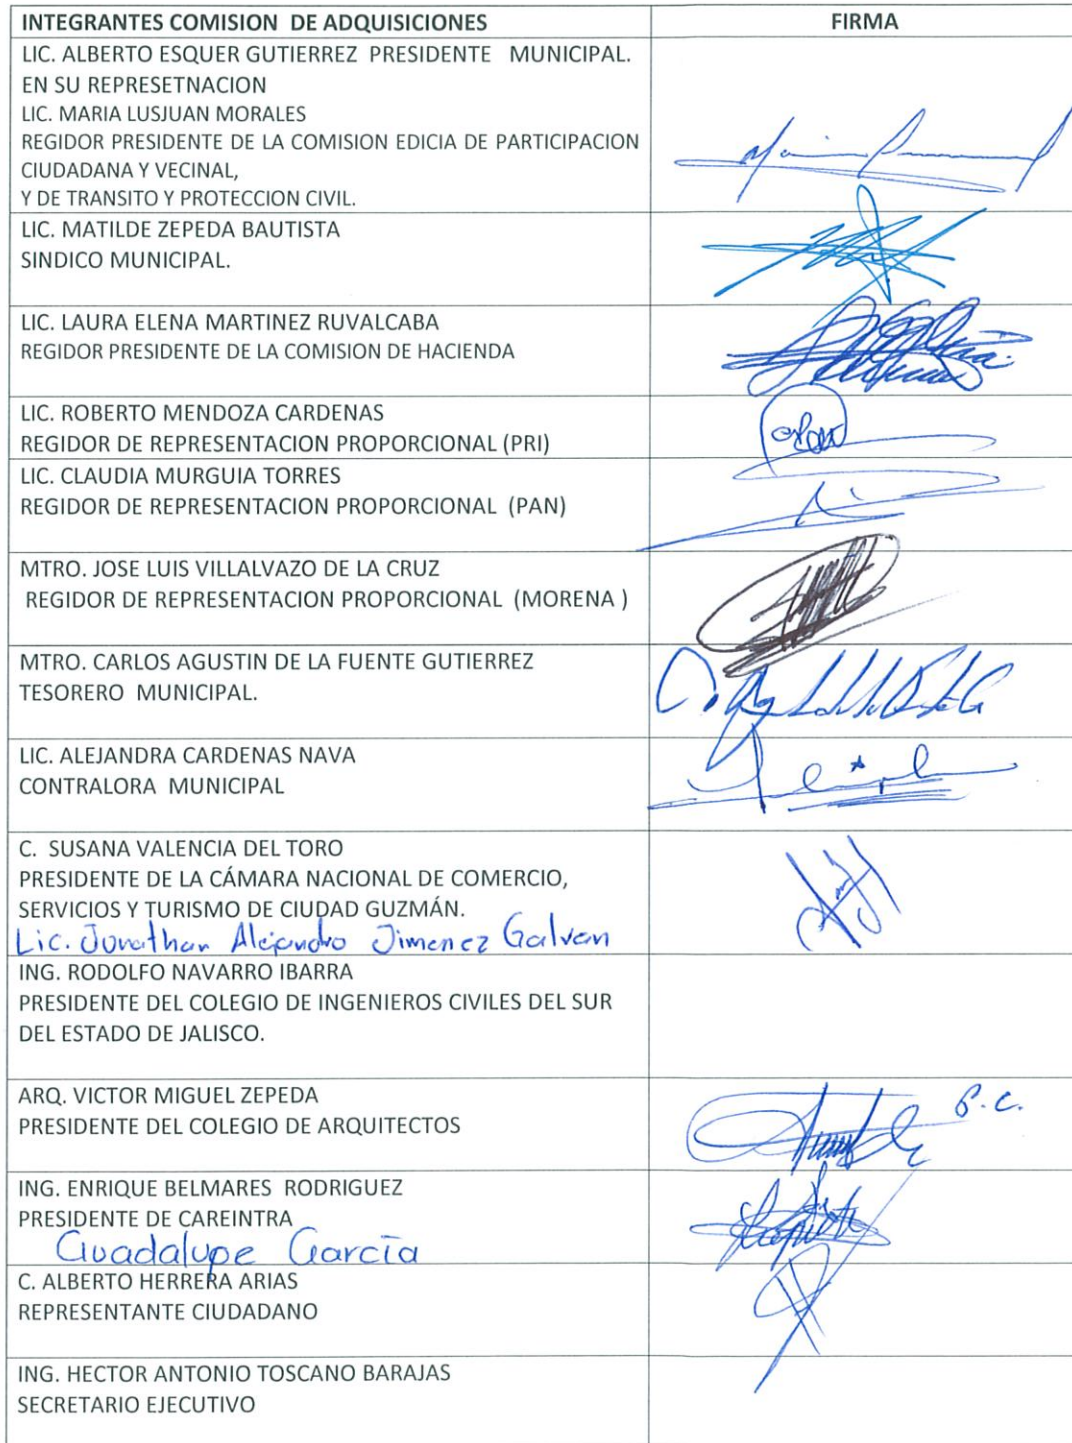 INTEGRANTES COMISION DE ADQUISICIONES FIRMA
LIC. ALBERTO ESQUER GUTIERREZ PRESIDENTE MUNICIPAL.
EN SU REPRESETNACION
LIC. MARIA LUSJUAN MORALES
REGIDOR PRESIDENTE DE LA COMISION EDICIA DE PARTICIPACION
CIUDADANA Y VECINAL,
Y DE TRANSITO Y PROTECCION CIVIL.
LIC. MATILDE ZEPEDA BAUTISTA
SINDICO MUNICIPAL.
LIC. LAURA ELENA MARTINEZ RUVALCABA
REGIDOR PRESIDENTE DE LA COMISION DE HACIENDA
LIC. ROBERTO MENDOZA CARDENAS
REGIDOR DE REPRESENTACION PROPORCIONAL (PRI)
LIC. CLAUDIA MURGUIA TORRES
REGIDOR DE REPRESENTACION PROPORCIONAL (PAN)
MTRO. JOSE LUIS VILLALVAZO DE LA CRUZ
REGIDOR DE REPRESENTACION PROPORCIONAL (MORENA )
MTRO. CARLOS AGUSTIN DE LA FUENTE GUTIERREZ
TESORERO MUNICIPAL.
LIC. ALEJANDRA CARDENAS NAVA
CONTRALORA MUNICIPAL
C. SUSANA VALENCIA DEL TORO
PRESIDENTE DE LA CÁMARA NACIONAL DE COMERCIO,
SERVICIOS Y TURISMO DE CIUDAD GUZMÁN.
Lic. Jonathan Alejandro Jimenez Galvan
ING. RODOLFO NAVARRO IBARRA
PRESIDENTE DEL COLEGIO DE INGENIEROS CIVILES DEL SUR
DEL ESTADO DE JALISCO.
ARQ. VICTOR MIGUEL ZEPEDA
PRESIDENTE DEL COLEGIO DE ARQUITECTOS
ING. ENRIQUE BELMARES RODRIGUEZ
PRESIDENTE DE CAREINTRA
Guadalupe García
C. ALBERTO HERRERA ARIAS
REPRESENTANTE CIUDADANO
ING. HECTOR ANTONIO TOSCANO BARAJAS
SECRETARIO EJECUTIVO